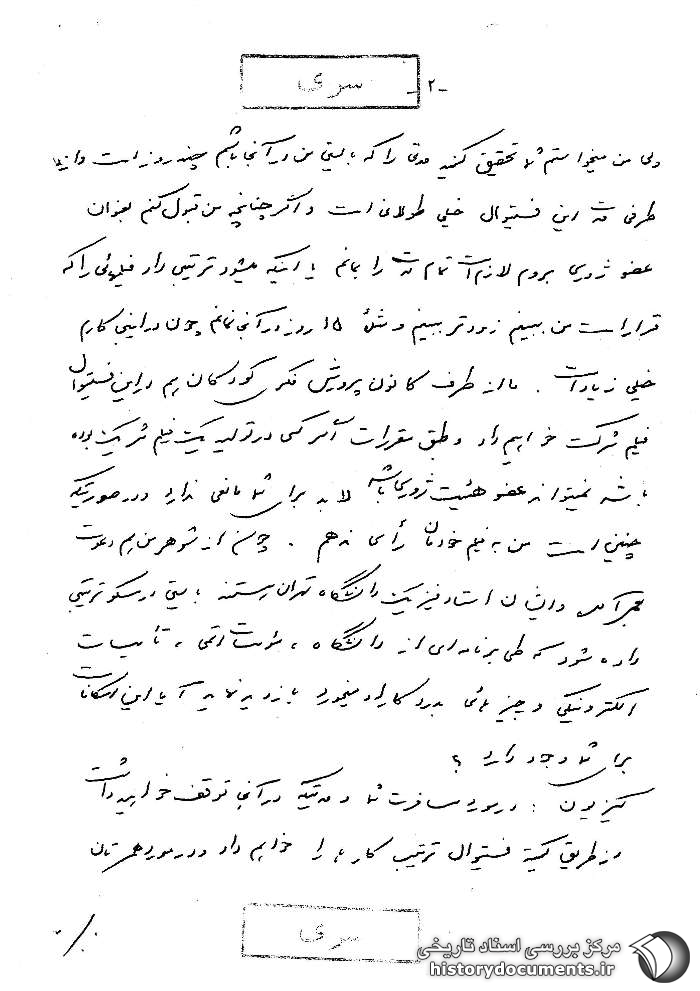 سری
-۲-
ولی من میخواستم شما تحقیق کنید مدتی را که بایستی من در آنجا باشم چند روز است و از
طرفی مدت این فستیوال خیلی طولانی است و اگر چنانچه من قبول کنم بعنوان
عضو ژوری بروم لازم است تمام مدت را بمانم یا اینکه میشود ترتیبی داد فیلمهائی را که
قرار است من ببینم زودتر ببینم و مثلاً ۱۵ روز در آنجا نمانم چون در اینجا کارم
خیلی زیاد است . ما از طرف کانون پرورش فکری کودکان هم در این فستیوال
فیلم شرکت خواهیم داد و طبق مقررات اگر کسی در تولید یک فیلم شریک بوده
باشد نمیتواند عضو هیئت ژوری باشد لابد برای شما مانعی ندارد در صورتیکه
چنین است من به فیلم خودمان رأی ندهم . چون از شوهر من هم دعوت
بعمل آمده و ایشان استاد فیزیک دانشگاه تهران هستند بایستی در مسکو ترتیبی
داده شود که طی برنامه‌ای از دانشگاه ، مؤسسات اتمی ، تأسیسات
الکترونیکی و چیزهائی که بدرد کار او میخورد بازدید نماید آیا این امکانات
برای شما وجود دارد ؟
کیزیون : در مورد مسافرت شما و مدتیکه در آنجا توقف خواهید داشت
من از طریق کمیته فستیوال ترتیب کارها را خواهم داد و در مورد همسرتان
سری
مرکز بررسی اسناد تاریخی
historydocuments.ir